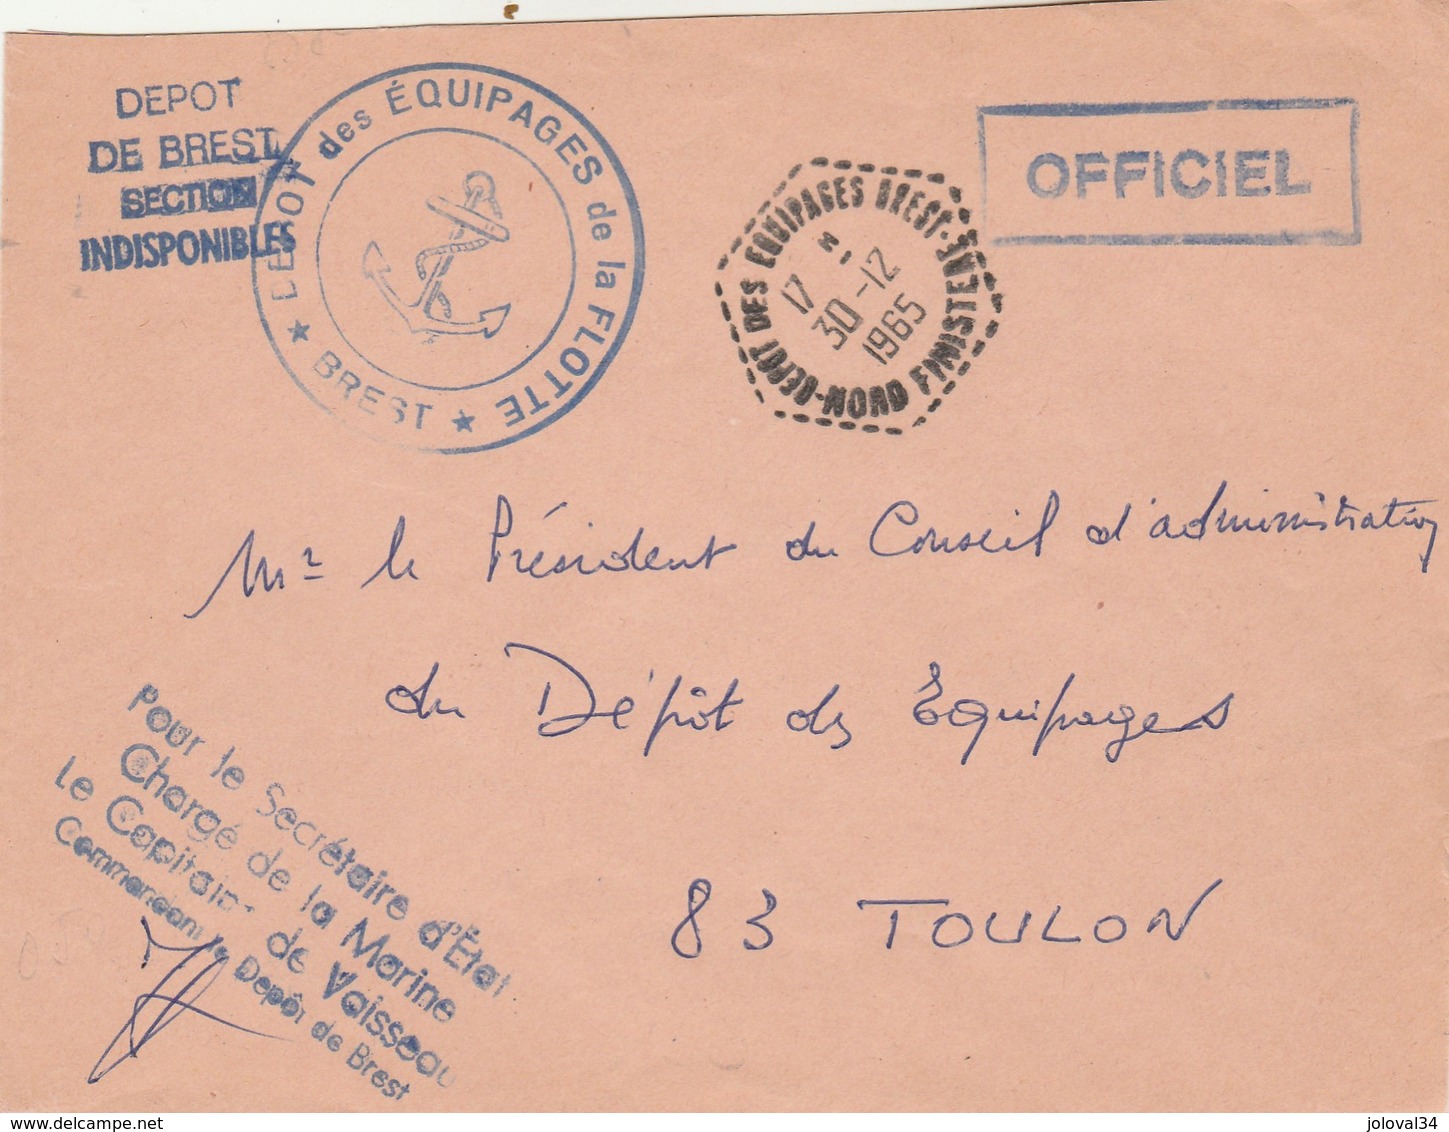 DEPOT
DE BREST
SECTION
INDISPONIBLES
DEPOT des ÉQUIPAGES de la FLOTTE
★ BREST ★
DEPOT DES EQUIPAGES BREST-
NORD FINISTERE
17 H.
30-12
1965
OFFICIEL
Mr le Président du Conseil d'administration
du Dépôt des Equipages
83 TOULON
Pour le Secrétaire d'État
Chargé de la Marine
Le Capitaine de Vaisseau
Commandant le Depôt de Brest
joloval34